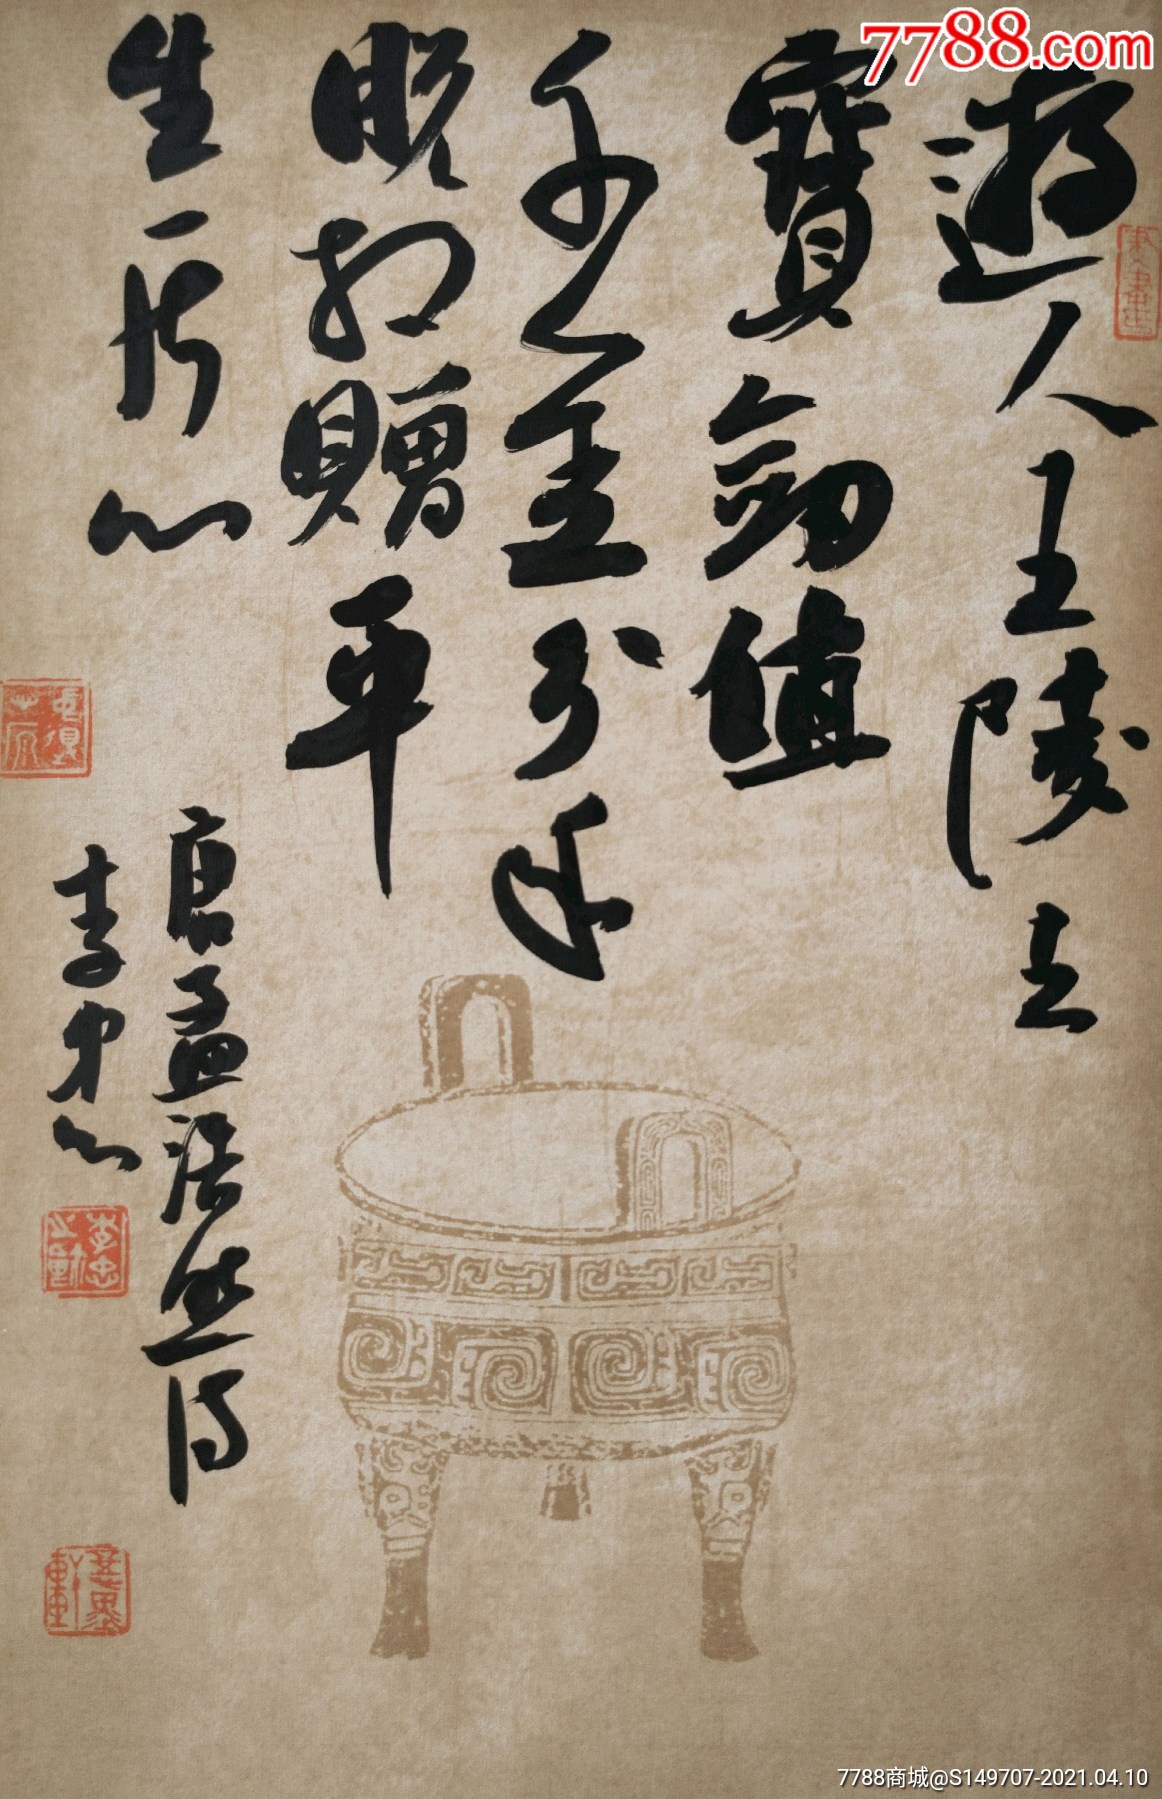 7788.com
遊人五陵去
寶劍值
千金分手
脱相贈平
生一片心
唐孟浩然詩
李忠
7788商城@S149707-2021.04.10